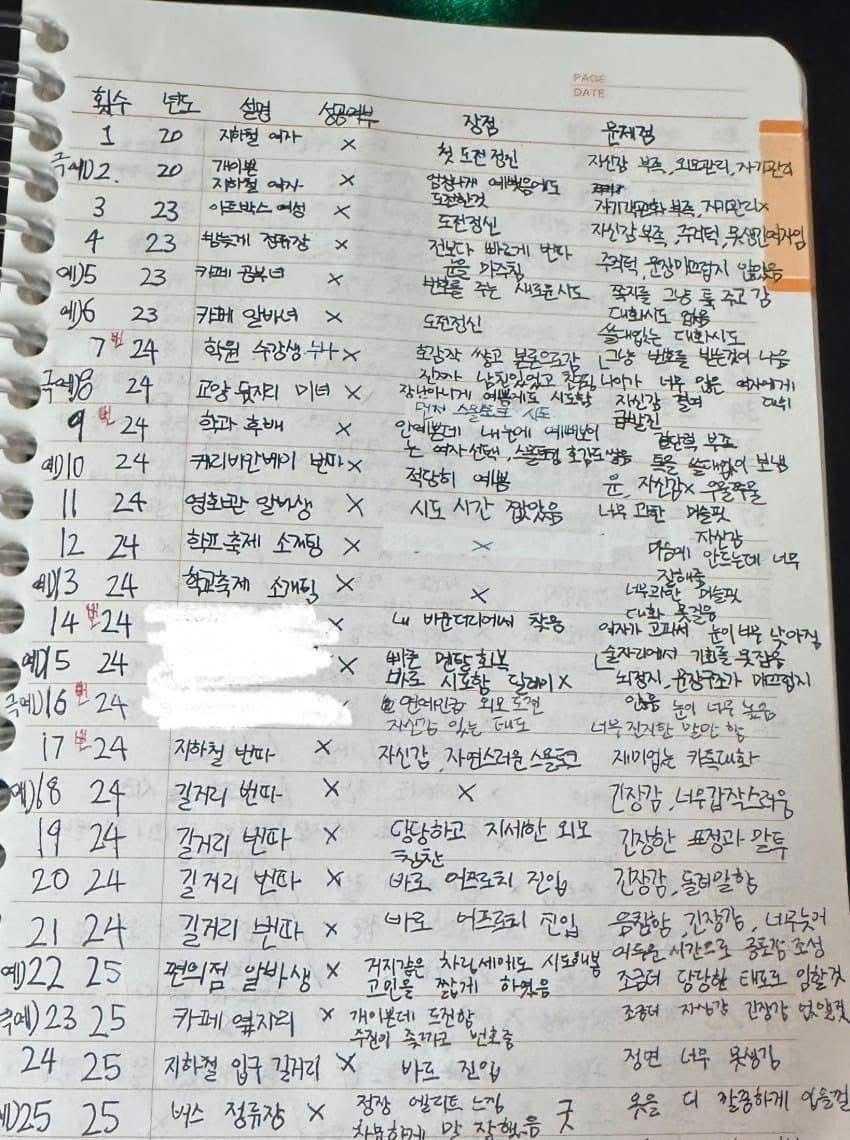 PAGE
DATE
횟수 년도 설명 성공여부 장점 문제점
1 20 지하철 여자 X 첫 도전정신 자신감 부족, 외모관리, 자기관리
극예)2. 20 개이쁜 지하철 여자 X 엄청나게 예뻤음에도 도전한것
3 23 아트박스 여성 X 도전정신 자기관리X
4 23 정류장 X 전보다 빠르게 번따 자신감 부족, 주적턱, 못생긴여자임
예)5 23 카페 공부녀 X 눈을 마주침 번호를 주는 새로운시도 주적턱, 문장매끄럽지 않았음
예)6 23 카페 알바녀 X 도전정신 쪽지를 그냥 툭 주고 감 대화시도 없음
7 번 24 학원 수강생 누나 X 호감작 쌓고 본론으로감 쓸데없는 대화시도 그냥 번호를 받는것이 나음
극예)8 24 교양 뒷자리 미녀 X 장난아니게 예쁨에도 시도함 나이가 너무 많은 여자에게 대쉬 자신감 결여
9 번 24 학과 후배 X 먼저 스몰토크 시도 급발진
예)10 24 캐리비안베이 번따 X 적당히 예쁨 결단력 부족 톡을 쓸데없이 보냄
11 24 영화관 알바생 X 시도 시간 짧았음 운, 자신감X 우물쭈물
12 24 학교축제 소개팅 X X 너무 과한 머슬핏 자신감
예)13 24 학교축제 소개팅 X X 마음에 안드는데 너무 잘해줌
14 번 24 X 내 바운더리에서 작용 너무과한 머슬핏 대화 못걸음
예)15 24 X 빠른 멘탈회복 바로 시도함 딜레이X 여자가 고파서 눈이 너무 낮아짐 술자리에서 기회를 못잡음
극예)16 번 24 연예인급 외모 도전 자신감 있는 태도 뇌정지, 문장구조가 매끄럽지 않음 눈이 너무 높음
17 번 24 지하철 번따 X 자신감, 자연스러운 스몰토크 너무진지한 말만 함 재미없는 카톡대화
예)18 24 길거리 번따 X X 긴장감, 너무갑작스러움
19 24 길거리 번따 X 당당하고 자세한 외모 칭찬 긴장한 표정과 말투
20 24 길거리 번따 X 바로 어프로치 진입 긴장감, 돌려말함
21 24 길거리 번따 X 바로 어프로치 진입 음침함, 긴장감, 너무늦어 어두운 시간으로 공포감 조성
예)22 25 편의점 알바생 X 거지같은 차림새에도 시도해봄 고민을 짧게 하였음 조금더 당당한 태도로 임할것
극예)23 25 카페 옆자리 X 개이쁜데 도전함 번호줌 조금더 자신감 긴장감 없앨것
24 25 지하철 입구 길거리 X 바로 진입 정면 너무 못생김
예)25 25 버스 정류장 X 정장 엘리트 느낌 차분하게 말 잘했음 굿 옷을 더 깔끔하게 입을걸